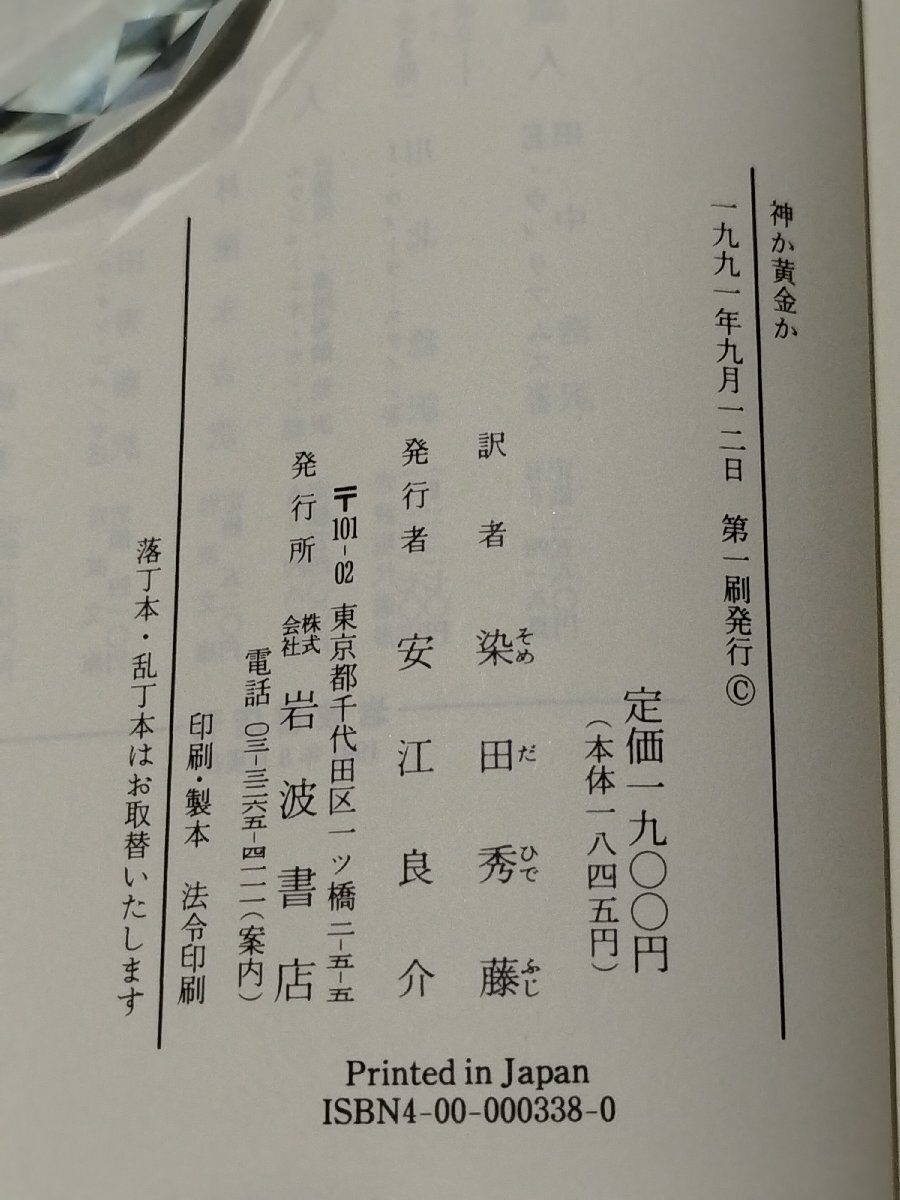 神か黄金か
一九九一年九月一二日　第一刷発行Ⓒ
定価一九〇〇円
（本体一八四五円）
訳者　染田秀藤
そめ　だ　ひで　ふじ
発行者　安江良介
〒101-02　東京都千代田区一ツ橋二-五-五
発行所　株式会社　岩波書店
電話　〇三-三二六五-四一一一（案内）
印刷・製本　法令印刷
落丁本・乱丁本はお取替いたします
Printed in Japan
ISBN4-00-000338-0